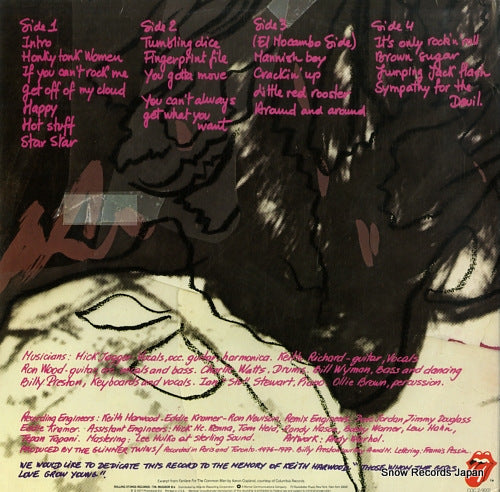 Side 1
Intro
Honky tonk Women
If you can't rock me
Get off of my cloud
Happy
Hot stuff
Star Star
Side 2
Tumbling dice
Fingerprint file
You gotta move
You can't always
get what you
want
Side 3
(El Mocambo Side)
Mannish boy
Crackin' up
Little red rooster
Around and around
Side 4
It's only rock'n roll
Brown Sugar
Jumping Jack flash
Sympathy for the
Devil.
Musicians: Mick Jagger-vocals, occ. guitar, harmonica. Keith Richard-guitar, Vocals
Ron Wood-guitar, vocals and bass. Charlie Watts, Drums. Bill Wyman, Bass and dancing
Billy Preston, Keyboards and vocals. Ian "Stu" Stewart, Piano Ollie Brown, percussion.
Recording Engineers: Keith Harwood-Eddie Kramer-Ron Nevison, Remix Engineers: Jordan, Jimmy Douglass
Eddie Kramer. Assistant Engineers: Randy Mason, Bobby Warner, Lew Hahn,
Mastering: Lee Hulko at Sterling Sound. Artwork: Andy Warhol.
PRODUCED BY THE GLIMMER TWINS/Recorded in Paris and Toronto. 1976-1977. Billy Preston
WE WOULD LIKE TO DEDICATE THIS RECORD TO THE MEMORY OF KEITH HARWOOD "THOSE WHOM THE GODS
LOVE GROW YOUNG".
Show Records Japan